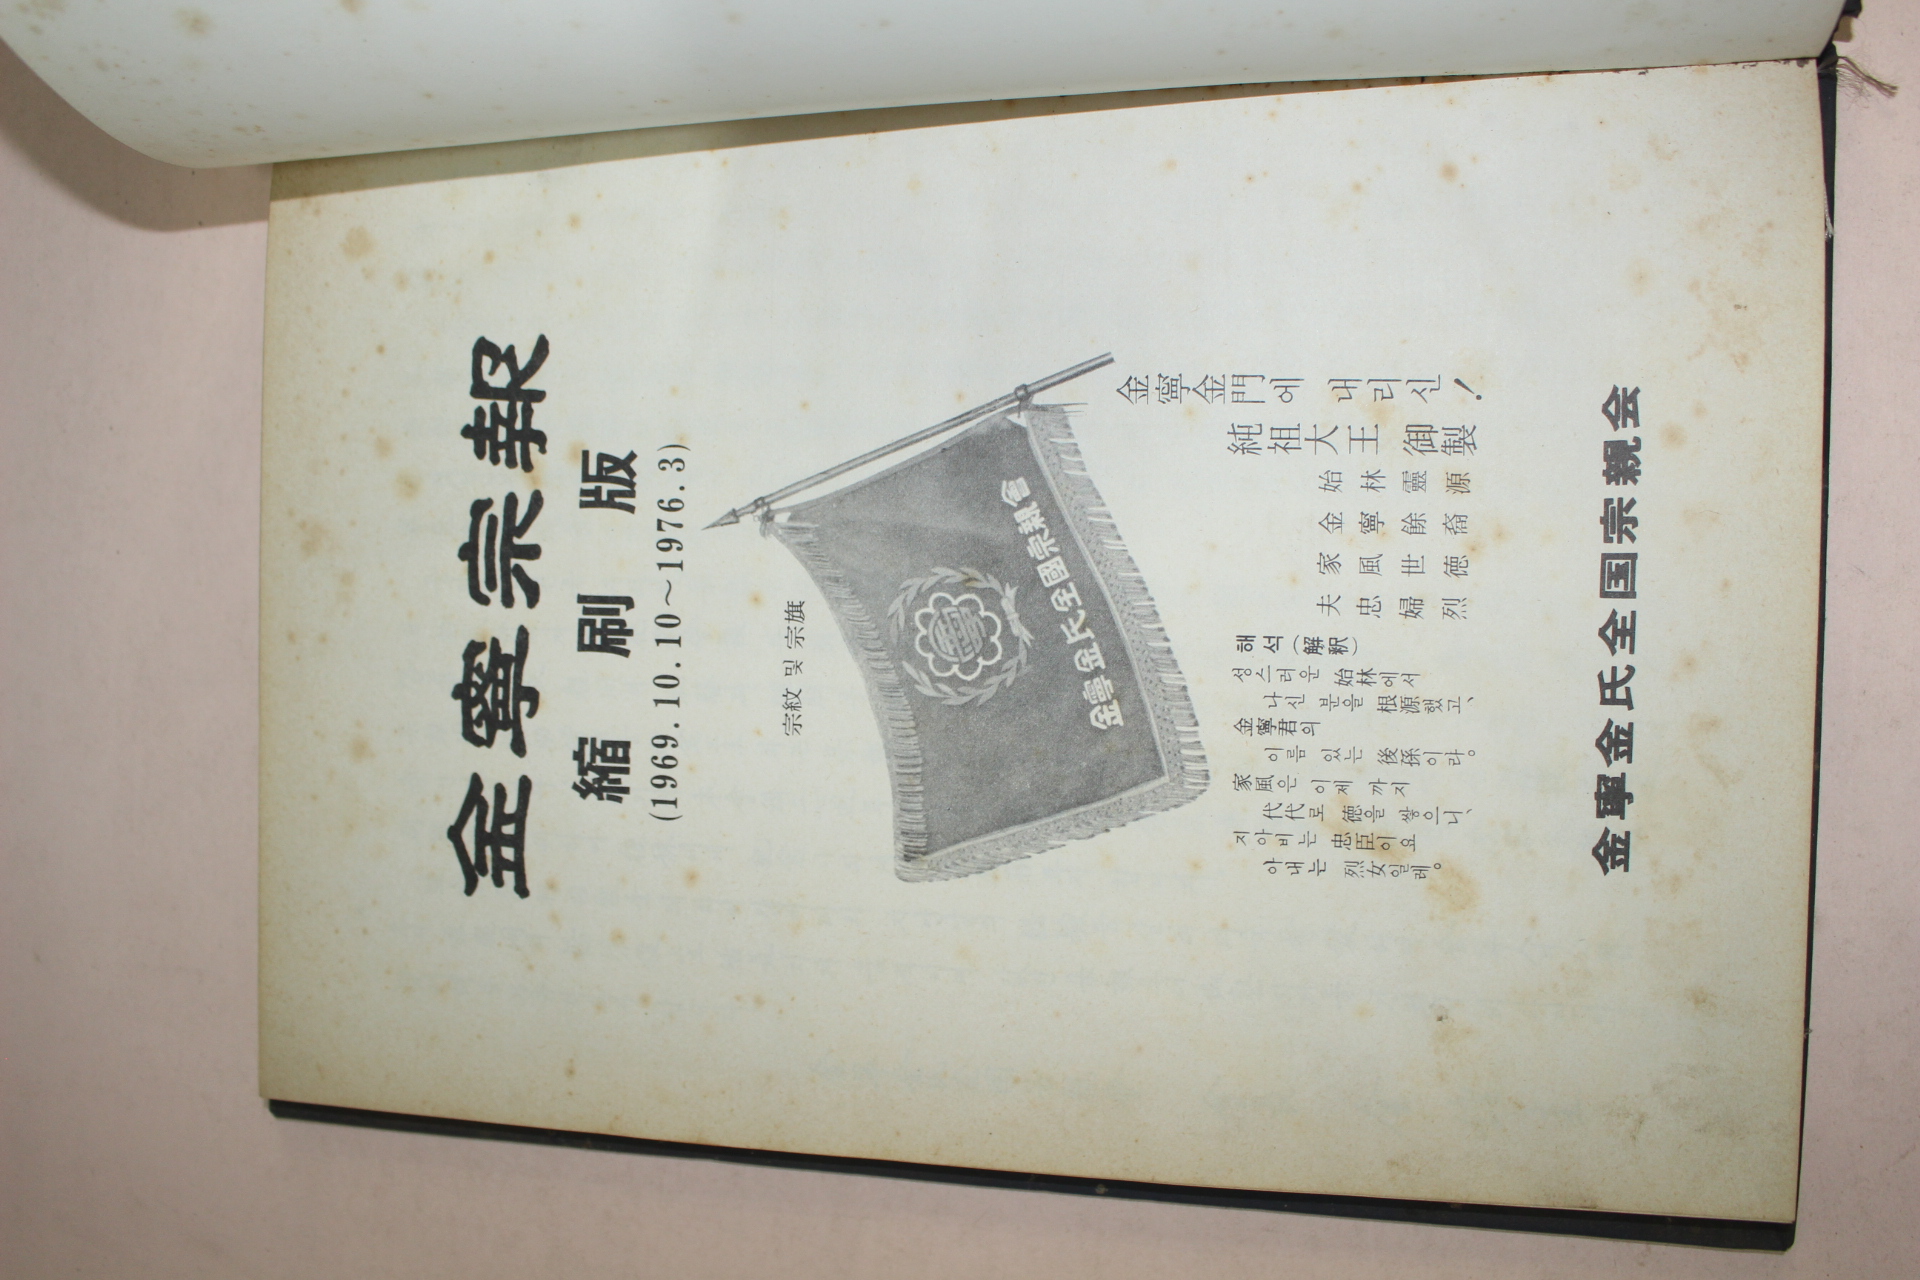 金寧宗報
縮刷版
(1969.10.10~1976.3)
宗紋 및 宗旗
金寧
金寧金氏全國宗親會
金寧金門에 내리신!
純祖大王 御製
始林靈源
金寧餘裔
家風世徳
夫忠婦烈
해석(解釈)
성스러운 始林에서
나신 분을 根源했고、
金寧君의
이름 있는 後孫이라。
家風은 이제 까지
代代로 徳을 쌓으니、
지아비는 忠臣이요
아내는 烈女일레。
金寧金氏全国宗親会